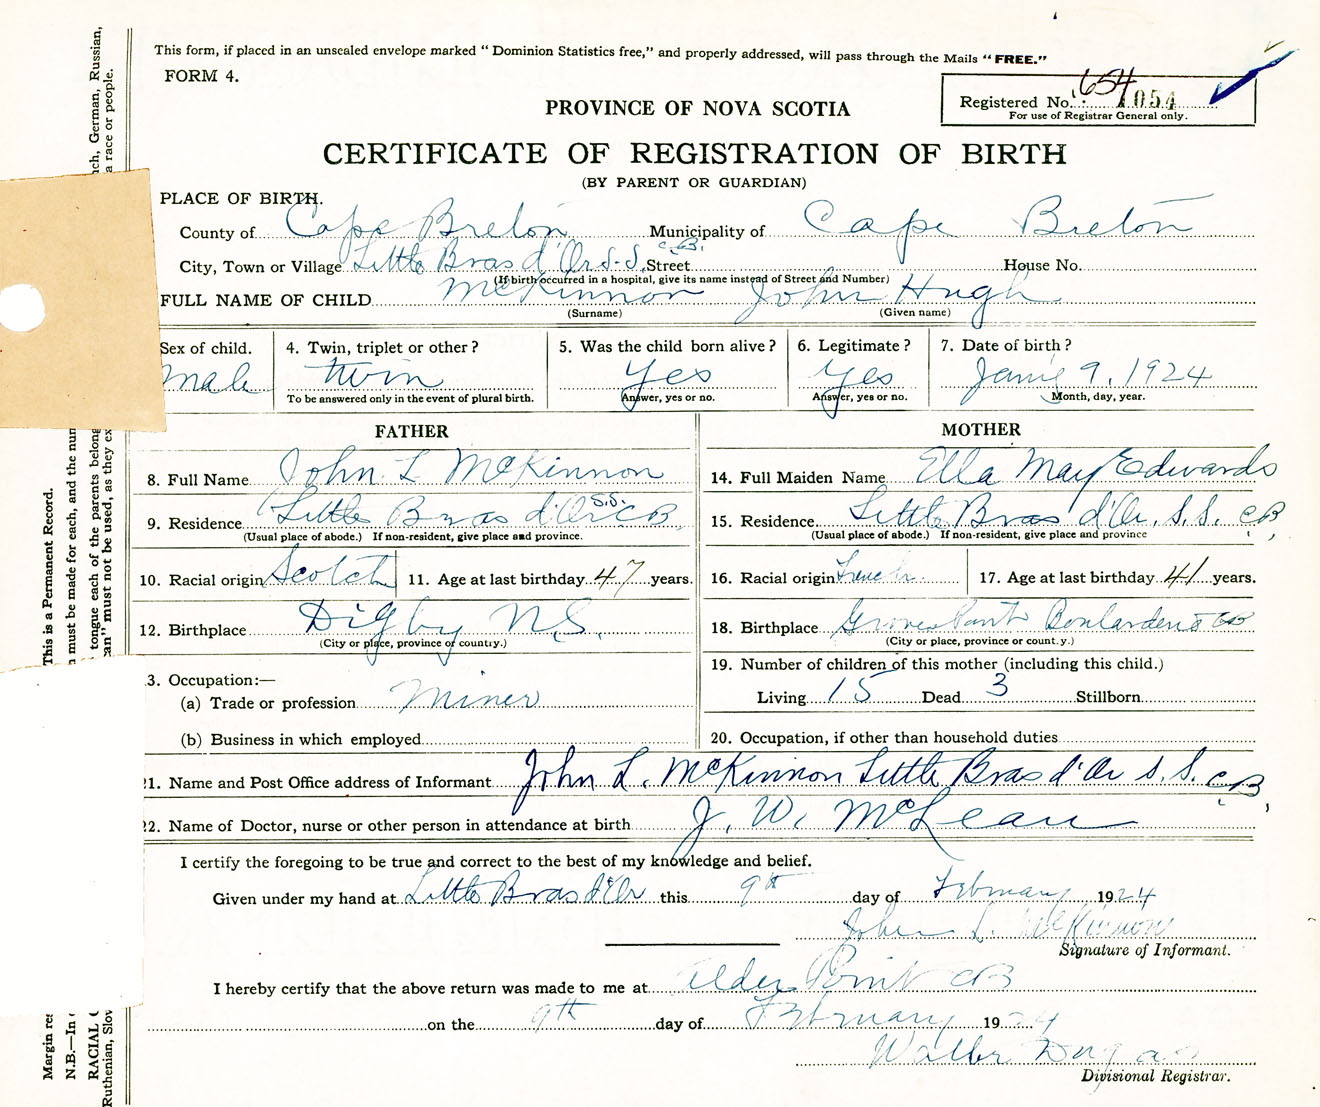 This form, if placed in an unsealed envelope marked "Dominion Statistics free," and properly addressed, will pass through the Mails "FREE."
FORM 4.
PROVINCE OF NOVA SCOTIA
Registered No. 654 1054
For use of Registrar General only.
CERTIFICATE OF REGISTRATION OF BIRTH
(BY PARENT OR GUARDIAN)
PLACE OF BIRTH.
County of Cape Breton Municipality of Cape Breton
City, Town or Village Little Bras d'Or S.S. C.B. Street House No.
(If birth occurred in a hospital, give its name instead of Street and Number)
FULL NAME OF CHILD McKinnon John Hugh
(Surname) (Given name)
Sex of child. 4. Twin, triplet or other? 5. Was the child born alive? 6. Legitimate? 7. Date of birth?
Male twin yes yes 9, 1924
To be answered only in the event of plural birth. Answer, yes or no. Answer, yes or no. Month, day, year.
FATHER MOTHER
8. Full Name John L McKinnon 14. Full Maiden Name Ella May Edwards
9. Residence Little Bras d'Or S.S. CB 15. Residence Little Bras d'Or. S.S. CB,
(Usual place of abode.) If non-resident, give place and province. (Usual place of abode.) If non-resident, give place and province
10. Racial origin Scotch 11. Age at last birthday 47 years. 16. Racial origin French 17. Age at last birthday 41 years.
12. Birthplace Digby N.S. 18. Birthplace Groves Point Boulardarie CB
(City or place, province or country.) (City or place, province or count.y.)
3. Occupation:—
19. Number of children of this mother (including this child.)
(a) Trade or profession Miner Living 15 Dead 3 Stillborn
(b) Business in which employed 20. Occupation, if other than household duties
21. Name and Post Office address of Informant John L. McKinnon Little Bras d'Or S.S. C.B,
22. Name of Doctor, nurse or other person in attendance at birth J. W. McLean
I certify the foregoing to be true and correct to the best of my knowledge and belief.
Given under my hand at Little Bras d'Or this 9th day of February 1924
John L. McKinnon
Signature of Informant.
I hereby certify that the above return was made to me at Alder Point CB
on the 9th day of February 1924
Walter Dugas
Divisional Registrar.
nch, German, Russian,
a race or people.
This is a Permanent Record.
n must be made for each, and the num
tongue each of the parents belong
can" must not be used, as they ex
Margin res
N.B.—In c
RACIAL
Ruthenian, Slov